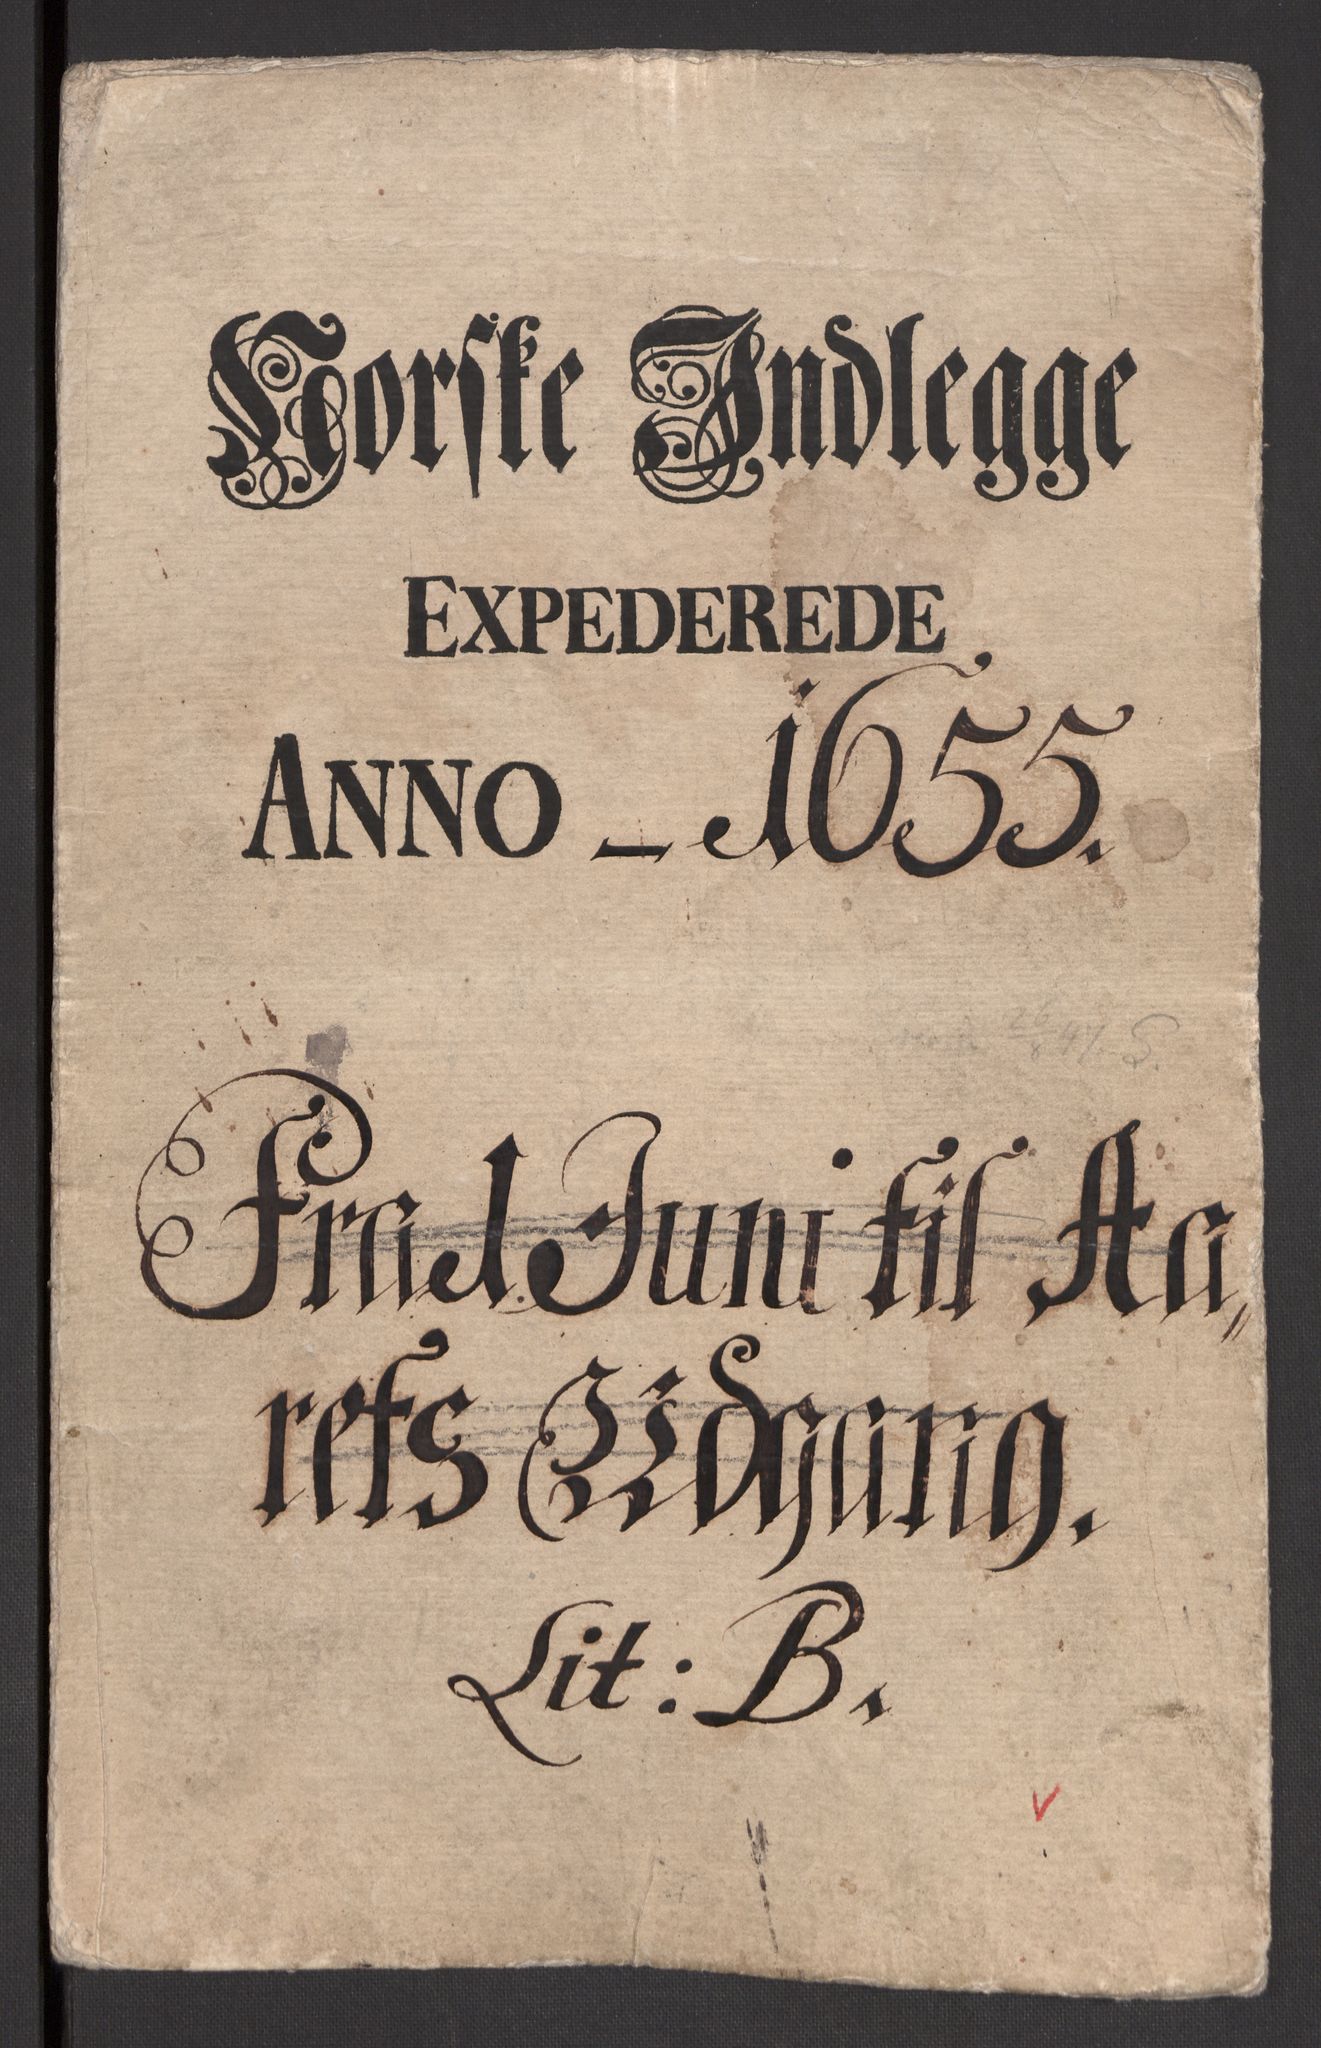 Norske Indlegge
EXPEDEREDE
ANNO – 1655.
Fra 1 Juni til Aa„
rets Udgang.
Lit: B.